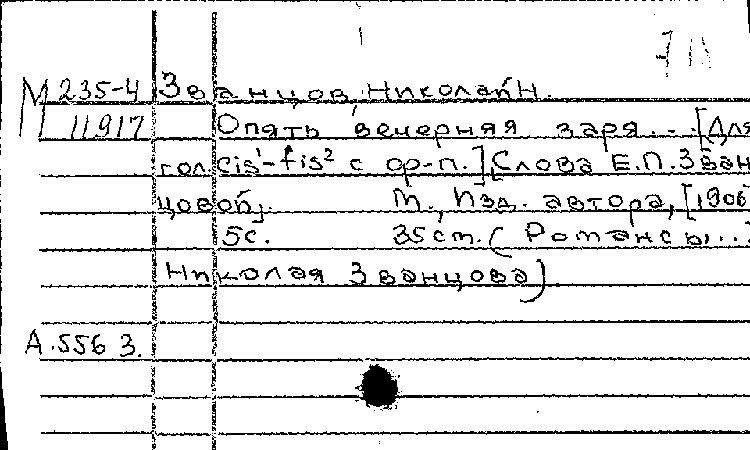 М 235-4 Званцов, Николай Н.
11917 Опять вечерняя заря... [Для
гол. cis¹-fis² с ф-п.] [Слова Е.П. Зван
цовой]. М., Изд. автора, [1906
5с. 35 cm. (Романсы...
Николая Званцова)
А.556 3.